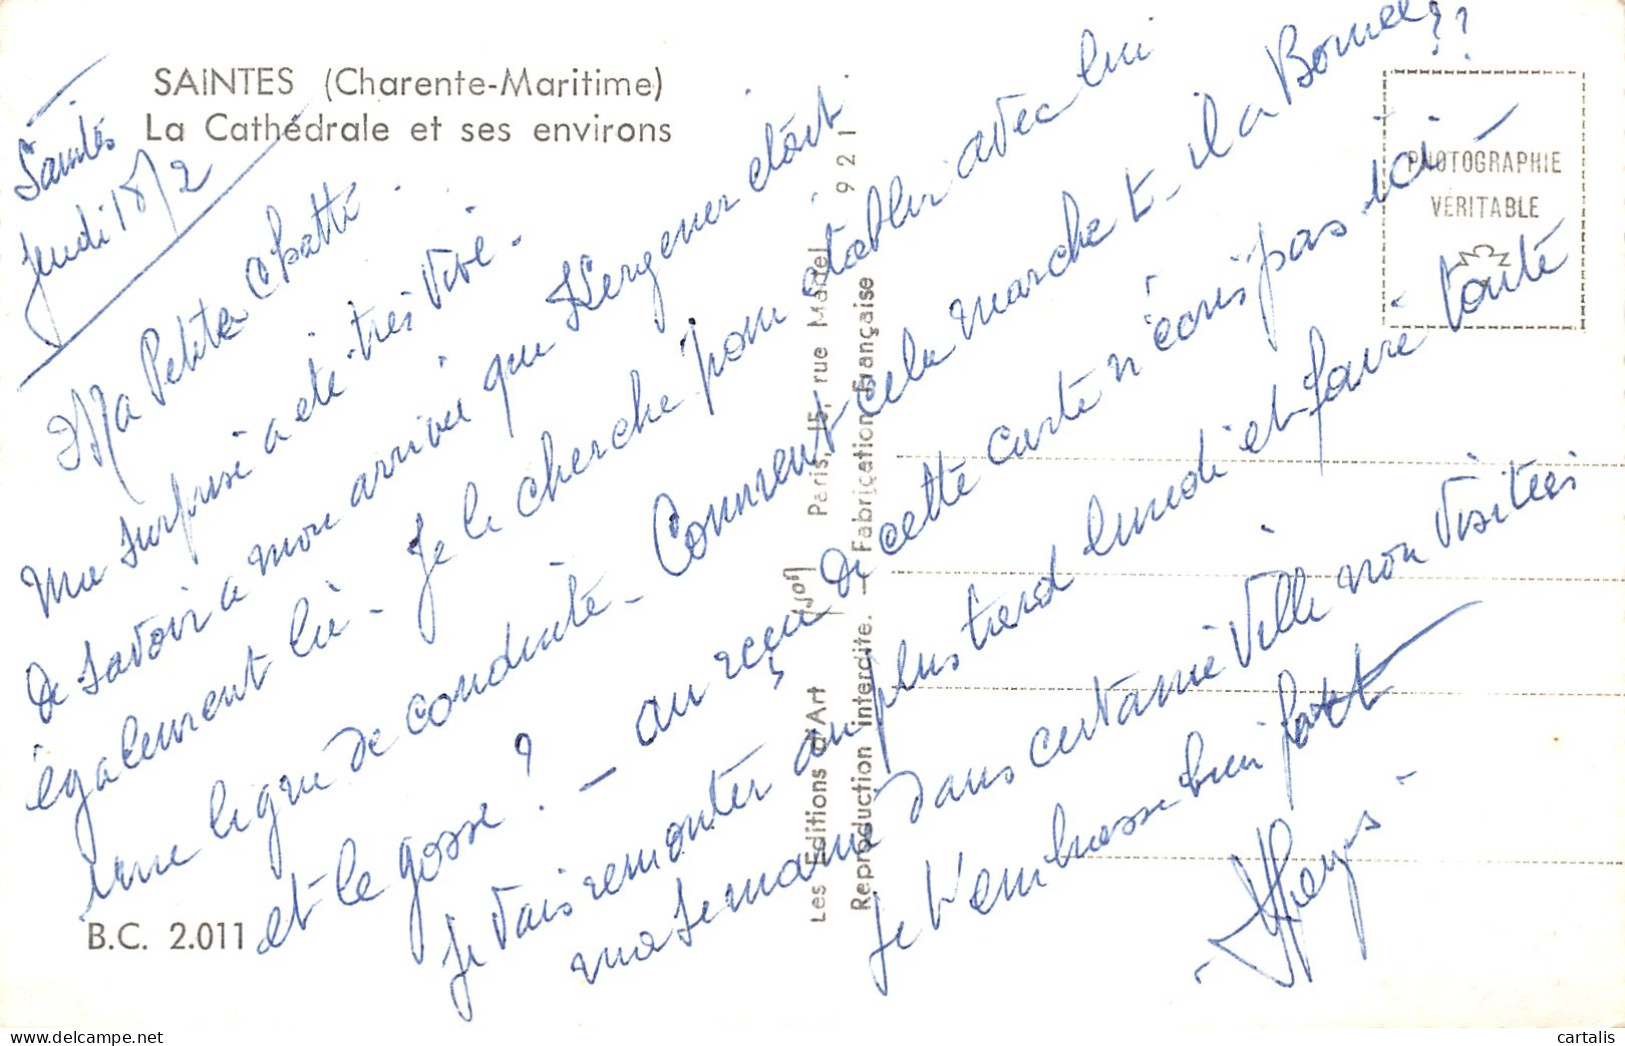 SAINTES (Charente-Maritime)
La Cathédrale et ses environs
Saintes
Jeudi 18/2
Ma Petite chatte.
Ma surprise a été très vive -
de savoir a mon arrivée que était
également lié - Je le cherche pour établir avec lui
une ligne de conduite - Comment cela marche t-il a ??
et le gosse ? - au reçu de cette carte n'écris pas ici -
Je vais remonter au plus tard lundi et faire toute
ma semaine dans certaine ville non visitées
Je t'embrasse bien fort
B.C. 2.011
Les Editions d'Art Yvon Paris, 15, rue Martel
Reproduction interdite. — Fabrication Française
921
PHOTOGRAPHIE
VÉRITABLE
cartalis